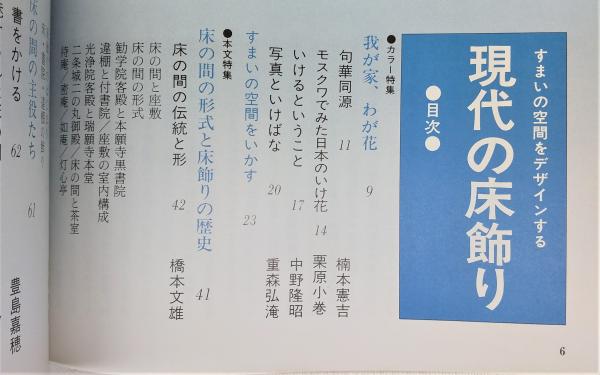 すまいの空間をデザインする
現代の床飾り
●目次●
●カラー特集
我が家、わが花 9
句華同源 11 楠本憲吉
モスクワでみた日本のいけ花 14 栗原小巻
いけるということ 17 中野隆昭
写真といけばな 20 重森弘淹
すまいの空間をいかす 23
●本文特集
床の間の形式と床飾りの歴史 41
床の間の伝統と形 42 橋本文雄
床の間と座敷
床の間の形式
勧学院客殿と本願寺黒書院
違棚と付書院／座敷の室内構成
光浄院客殿と瑞願寺本堂
二条城二の丸御殿／床の間と茶室
待庵／密庵／如庵／灯心亭
床の間の主役たち 61
書をかける 62 豊島嘉穂
6